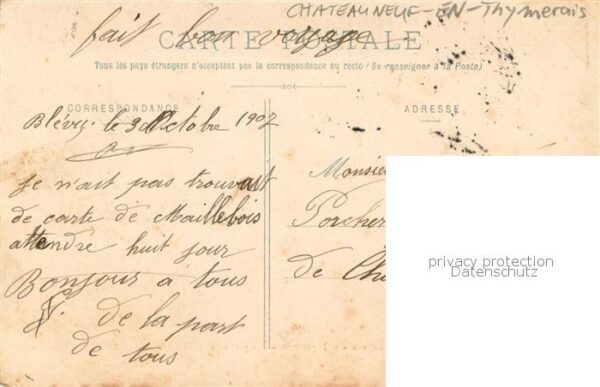 CHATEAUNEUF-EN-Thymerais
fait bon voyage
CARTE POSTALE
Tous les pays étrangers n'acceptent pas la correspondance au recto (Se renseigner à la Poste)
CORRESPONDANCE
ADRESSE
Blévy le 3 Octobre 1907
Je n'ait pas trouvait
de carte de Maillebois
attendre huit jour
Bonjour a tous
de la part
de tous
Monsieu
Porcher
de Ch
privacy protection
Datenschutz